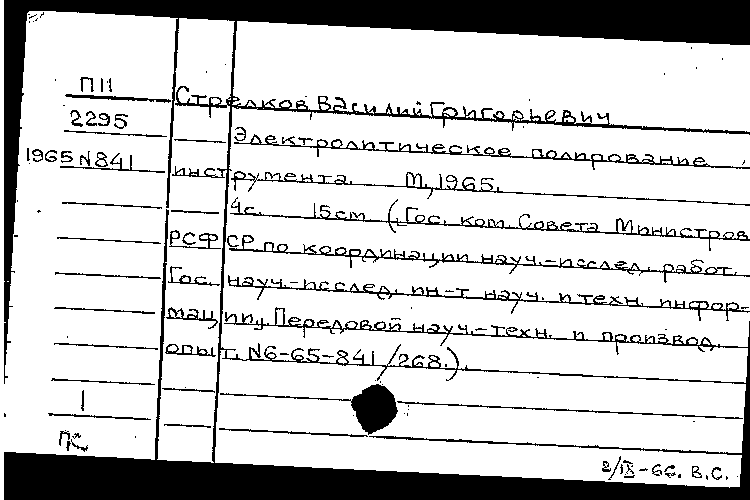 П11
2295
1965 N841
Стрелков, Василий Григорьевич
Электролитическое полирование
инструмента. М., 1965.
4с. 15см (Гос. ком. Совета Министров
РСФСР по координации науч.-исслед. работ.
Гос. науч.-исслед. ин-т науч. и техн. инфор-
мации, Передовой науч.-техн. и производ.
опыт. N6-65-841/268.).
1
2/IX-66. В.С.